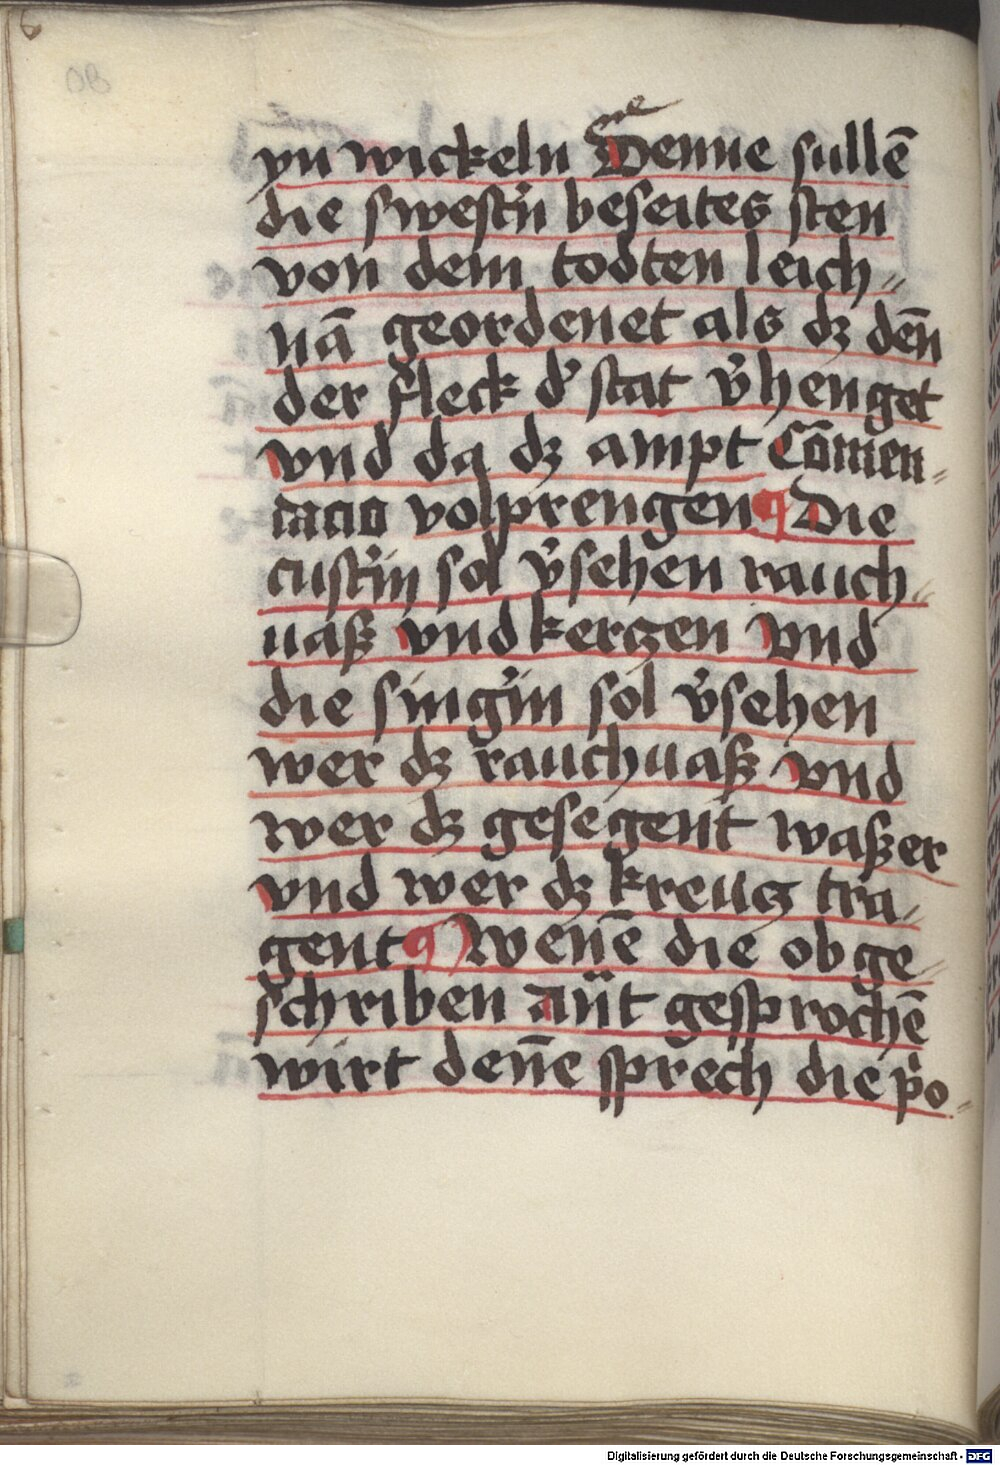 yn wickeln Denne sullē
die swest'n beseites sten
von dem todten leich〃
nā geordenet als dz den̄
der fleck d' stat v'henget
vnd da dz ampt Cōmen〃
dacio volprengen ¶ Die
cust'in sol v'sehen rauch〃
uaß vnd kerzen vnd
die sing'in sol v'sehen
wer dz rauchuaß vnd
wer dz gesegent waßer
vnd wer dz kreucz tra〃
gent ¶ Wen̄e die obge〃
schriben an̄t gesprochē
wirt den̄e sprech die p'o〃
Digitalisierung gefördert durch die Deutsche Forschungsgemeinschaft - DFG